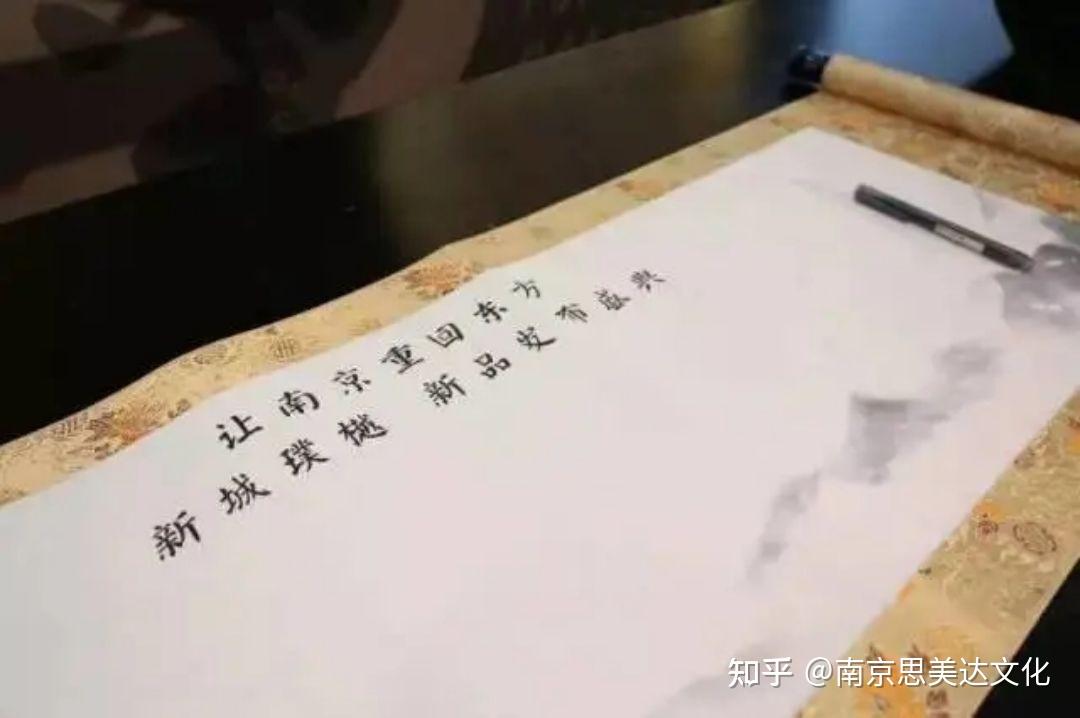 让南京重回东方
新城璞樾 新品发布盛典
知乎 @南京思美达文化